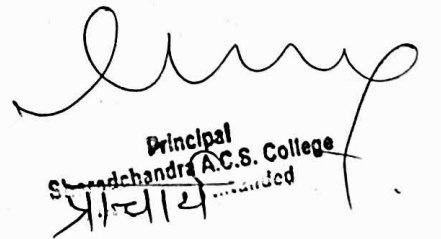 Principal
Sharadchandra A.C.S. College
प्राचार्य